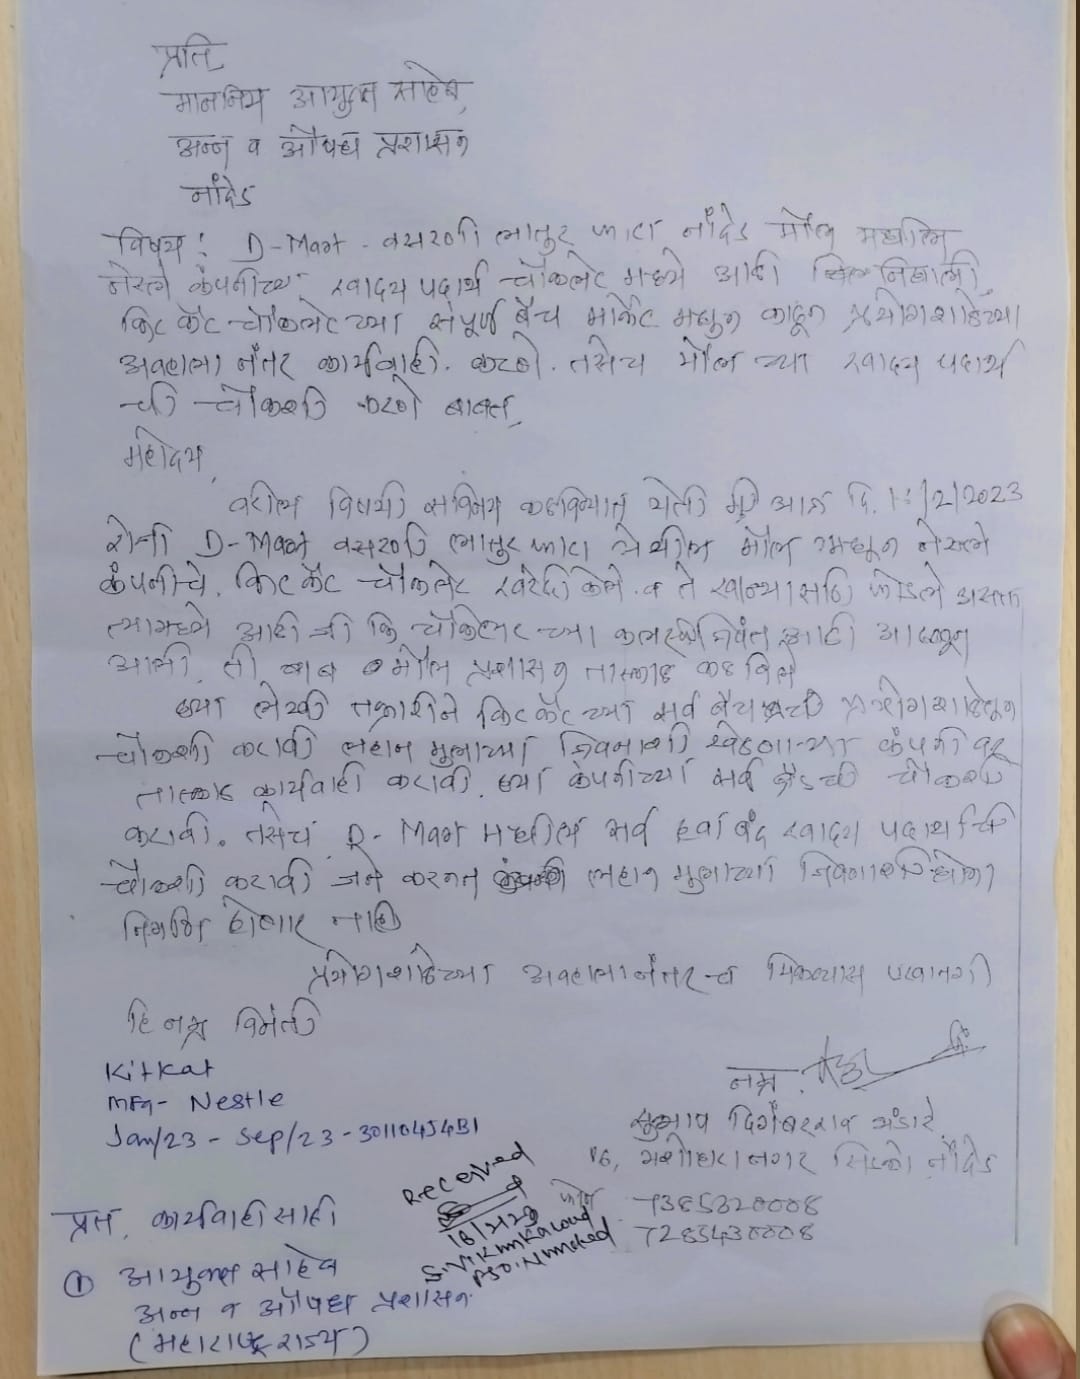 प्रति,
माननिय आयुक्त साहेब,
अन्न व औषध प्रशासन
नांदेड
विषय: D-Mart - वसरणी लातूर फाटा नांदेड मॉल मधील
नेस्ले कंपनीच्या खादय पदार्थ चॉकलेट मध्ये आळी निघाली
किट कॅट चॉकलेट च्या संपूर्ण बॅच मार्केट मधून काढून प्रयोगशाळेच्या
अवहाला नंतर कार्यवाही. करणे. तसेच मॉल च्या खादय पदार्थ
ची चौकशी करणे बाबत,
महोदय,
वरील विषयी सविनय कळविण्यात येते की आज दि. /2/2023
रोजी D-Mart वसरणी लातूर फाटा येथील मॉल मधून नेस्ले
कंपनीचे. किट कॅट चॉकलेट खरेदी केले. व ते खान्यासाठी फोडले असता
त्यामध्ये आळी जी कि चॉकलेट च्या कलरची जिवंत आळी आढळून
आली. ती बाब मॉल प्रशासन तात्काळ कळविले
ह्या लेखी तक्रारीने किट कॅट च्या सर्व बॅचची प्रयोगशाळेतून
चौकशी करावी लहान मुलाच्या जिवनाशी खेळणाऱ्या कंपनी वर
तात्काळ कार्यवाही करावी. ह्या कंपनीच्या सर्व ब्रॅडची चौकशी
करावी. तसेच D-Mart मधील सर्व हवा बंद खादय पदार्थाची
चौकशी करावी जेने करून लहान मुलाच्या जिवनास धोका
निर्माण होणार नाही
प्रयोगशाळेच्या अवहालानंतरच विकण्यास परवानगी
हि नम्र विनंती
Kitkat
Mfg- Nestle
Jan/23 - Sep/23 - 30110454B1
नम्र.
सुभाष दिगंबरराव भंडारे,
यशोधरा नगर सिडको नांदेड
फोन 7385320008
7285430008
Received
16/2/23
प्रत, कार्यवाही साठी
① आयुक्त साहेब
अन्न व औषध प्रशासन
(महाराष्ट्र राज्य)